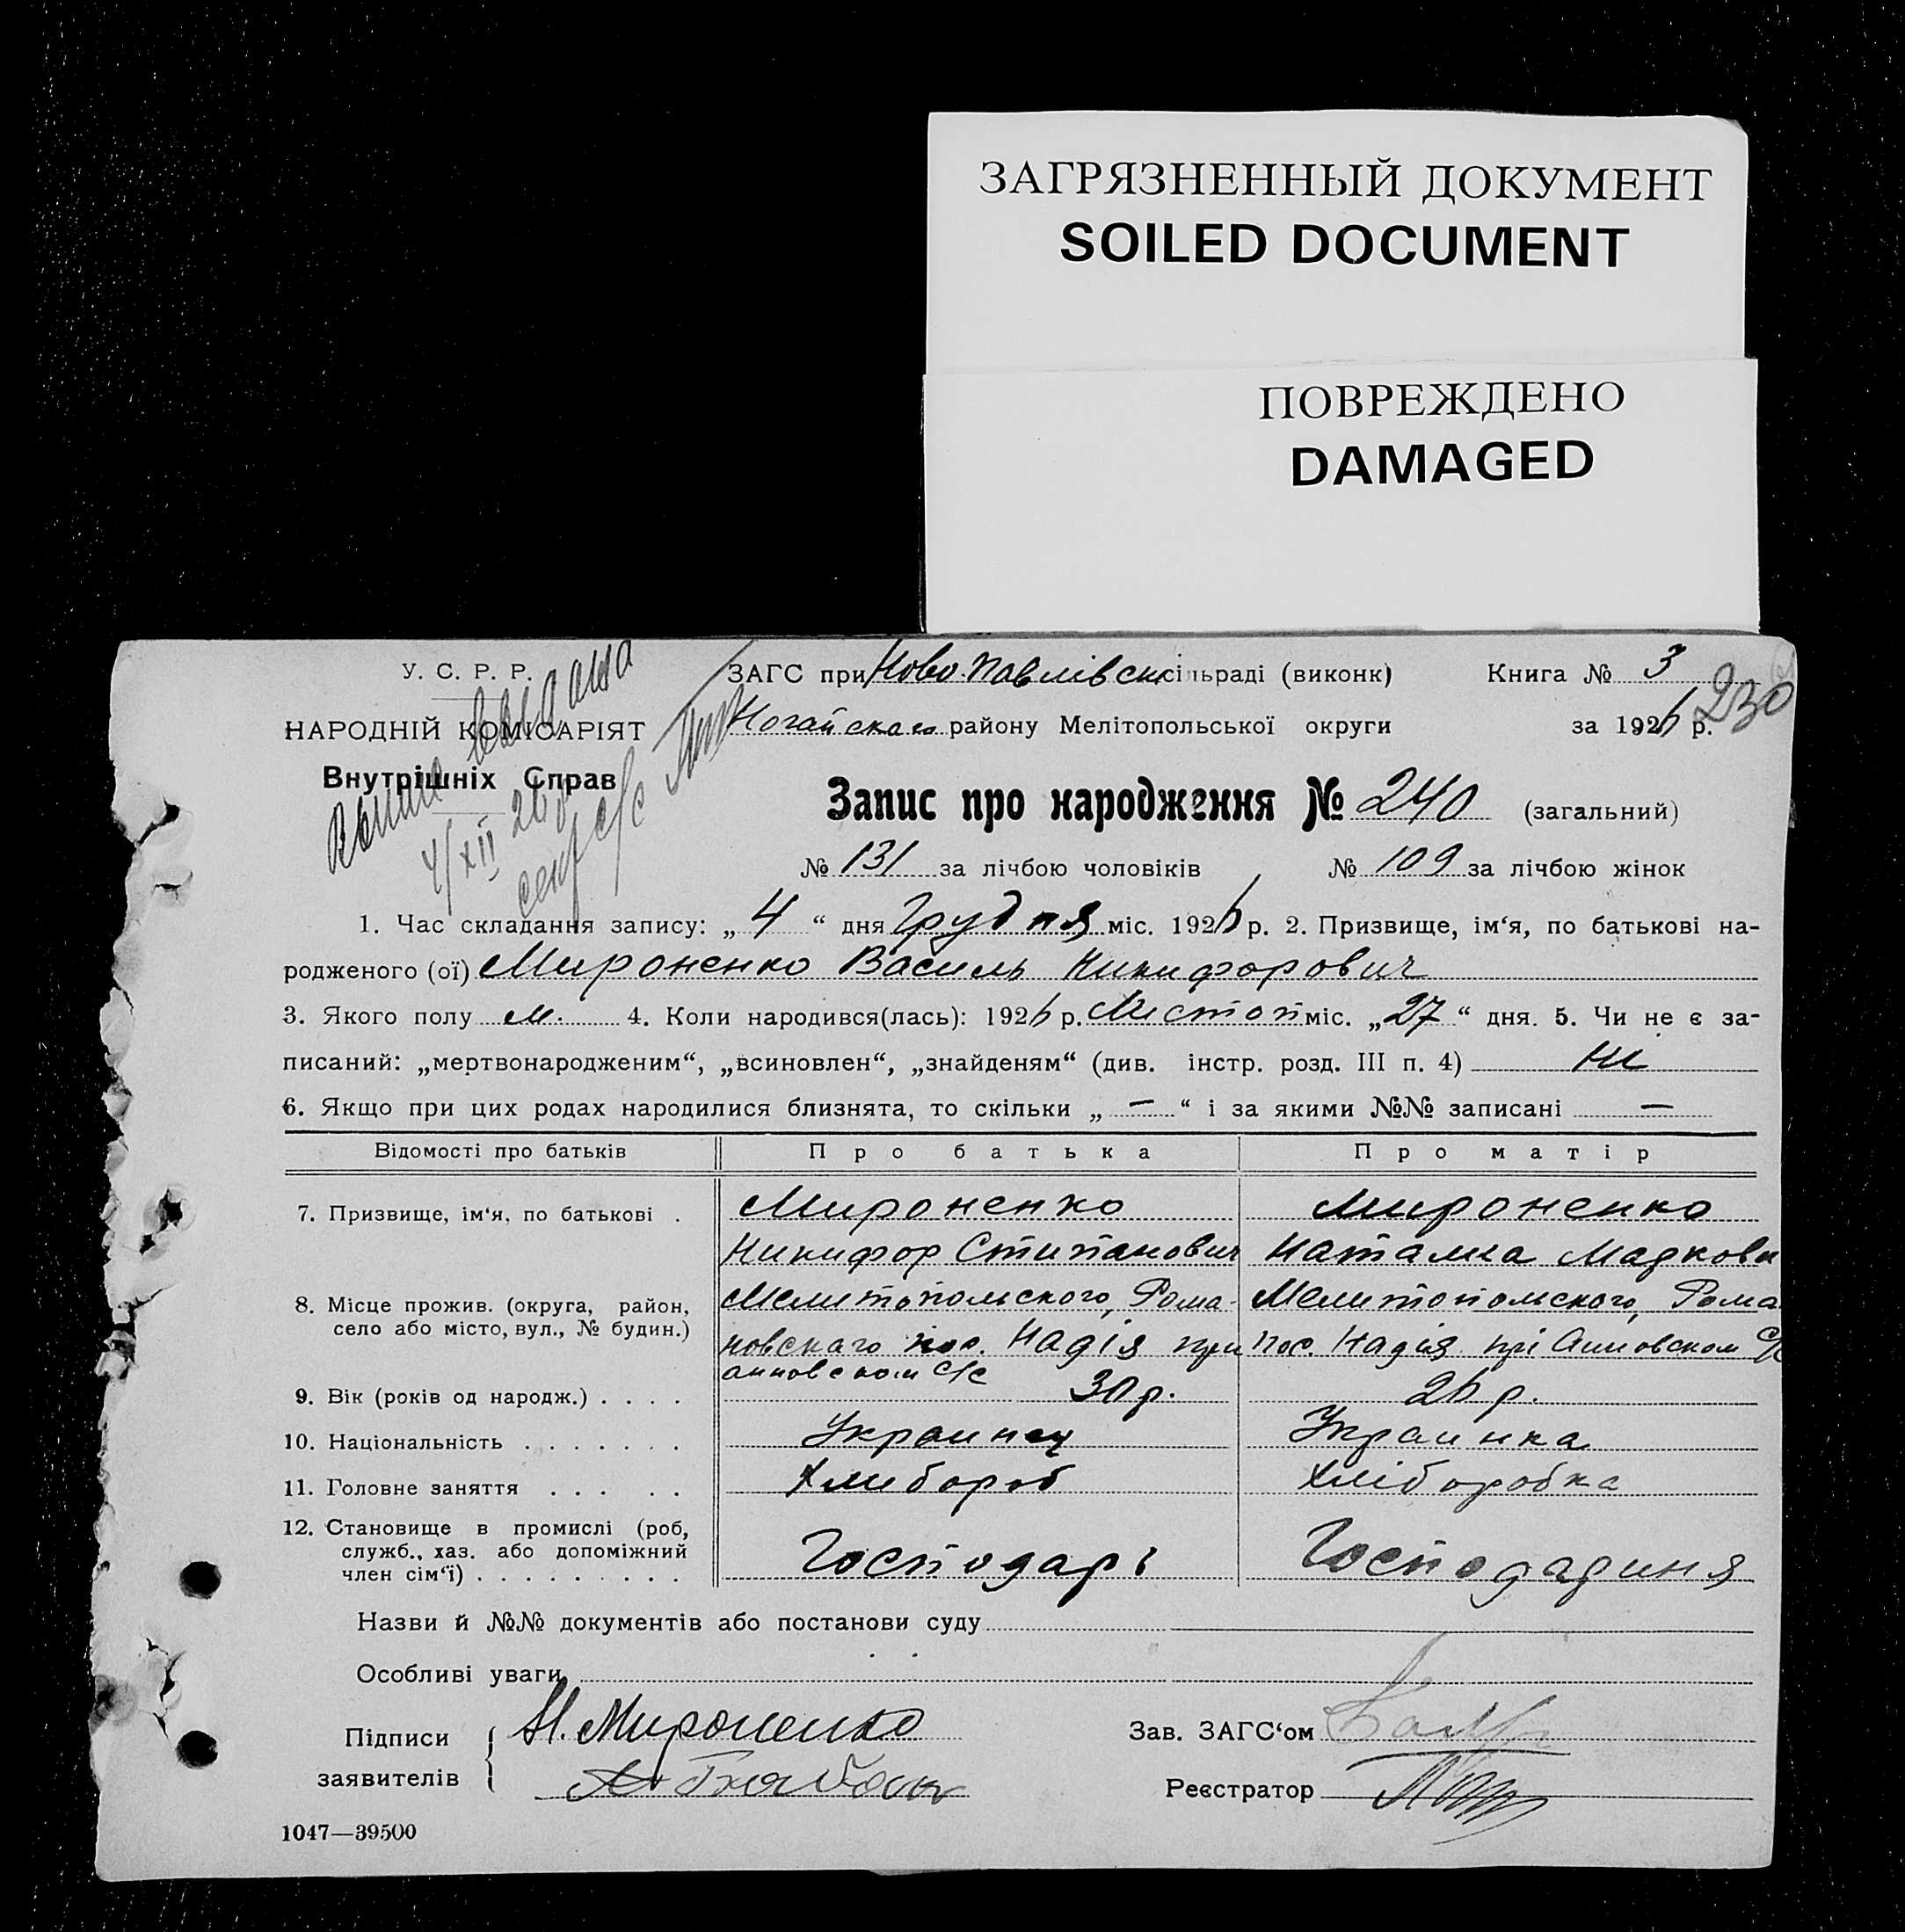 ЗАГРЯЗНЕННЫЙ ДОКУМЕНТ
SOILED DOCUMENT
ПОВРЕЖДЕНО
DAMAGED
У. С. Р. Р.
НАРОДНІЙ КОМІСАРІЯТ
Внутрішніх Справ
выпис выдана
4/XII 26
ЗАГС при Ново-Павлівск сільраді (виконк) Книга № 3
230
Ногайского району Мелітопольської округи за 1926 р.
Запис про народження № 240 (загальний)
№ 131 за лічбою чоловіків № 109 за лічбою жінок
1. Час складання запису: „ 4 “ дня Грудня міс. 1926 р. 2. Призвище, ім‘я, по батькові на-
родженого (ої) Мироненко Василь Никифорович
3. Якого полу м. 4. Коли народився(лась): 1926 р. Листоп міс. „ 27 “ дня. 5. Чи не є за-
писаний: „мертвонародженим“, „всиновлен“, „знайденям“ (див. інстр. розд. III п. 4) Ні
6. Якщо при цих родах народилися близнята, то скільки „ — “ і за якими №№ записані —
Відомості про батьків Про батька Про матір
7. Призвище, ім‘я, по батькові . Мироненко Мироненко
Никифор Стипанович Наталка Маркови
8. Місце прожив. (округа, район, село або місто, вул., № будин.)
Мелитопольского, Рома- Мелитопольского, Рома
новскаго пос. Надія при пос. Надія прі Анновском с/с
анновском с/с
9. Вік (років од народж.) . . . . 30 р. 26 р.
10. Національність . . . . . . . Украинец Украинка
11. Головне заняття . . . . . Хлибороб Хліборобка
12. Становище в промислі (роб,
служб., хаз. або допоміжний
член сім‘ї) . . . . . . . . . Господарь Господариня
Назви й №№ документів або постанови суду
Особливі уваги
Підписи заявителів { Н. Мироненко
Зав. ЗАГС‘ом
Реєстратор
1047—39500